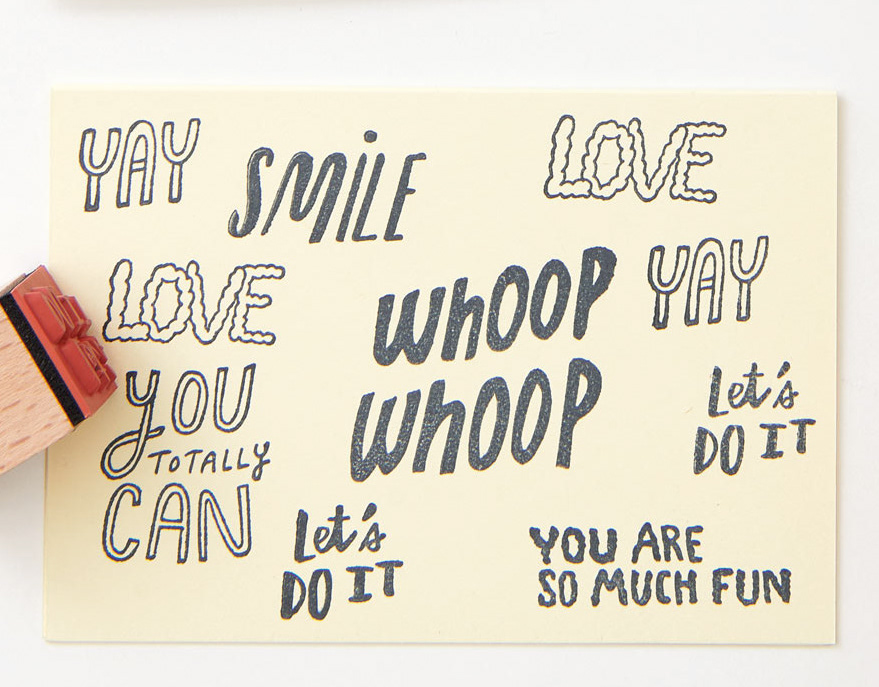 YAY
SMiLE
LOVE
LOVE
WhOOP
WhOOP
YAY
YOU
ToTALLY
CAN
Let's
DO IT
Let's
DO IT
YOU ARE
SO MUCH FUN